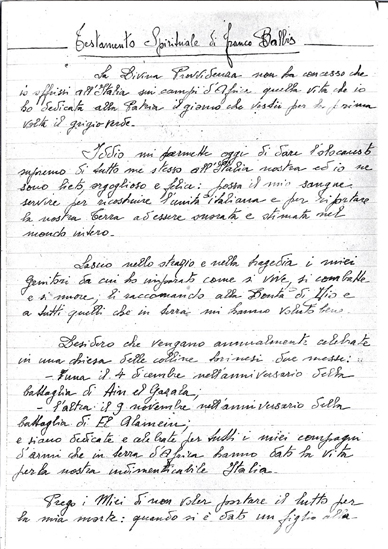 Testamento Spirituale di Franco Balbis
La Divina Provvidenza non ha concesso che
io offrissi all'Italia sui campi d'Africa quella vita che io
ho dedicata alla Patria il giorno che vestii per la prima
volta il grigioverde.
Iddio mi permette oggi di dare l'olocausto
supremo di tutto me stesso all'Italia nostra ed io ne
sono lieto, orgoglioso e felice: possa il mio sangue
servire per ricostruire l'unità italiana e per riportare
la nostra terra ad essere onorata e stimata nel
mondo intero.
Lascio nello strazio e nella tragedia i miei
genitori da cui ho imparato come si vive, si combatte
e si muore; li raccomando alla bontà di Dio e
a tutti quelli che in terra mi hanno voluto bene.
Desidero che vengano annualmente celebrate
in una chiesa delle colline torinesi due messe:
- l'una il 4 dicembre nell'anniversario della
battaglia di Ain el Gazala;
- l'altra il 9 novembre nell'anniversario della
battaglia di El Alamein;
e siano dedicate e celebrate per tutti i miei compagni
d'armi che in terra d'Africa hanno dato la vita
per la nostra indimenticabile Italia.
Prego i Miei di non voler portare il lutto per
la mia morte: quando si è dato un figlio alla